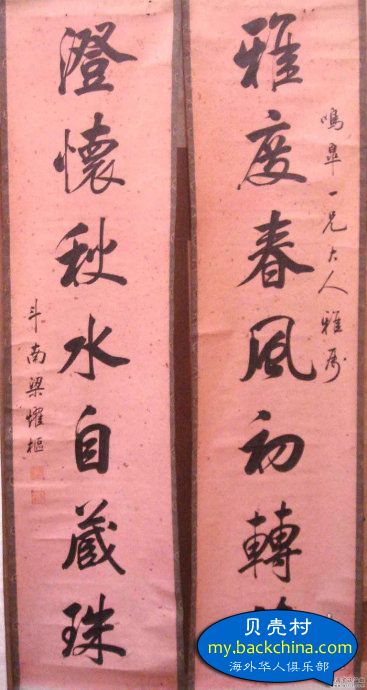 鳴皋一兄大人雅屬
雅度春風初轉
澄懷秋水自藏珠
斗南梁燿樞
贝壳村
my.backchina.com
海外华人俱乐部